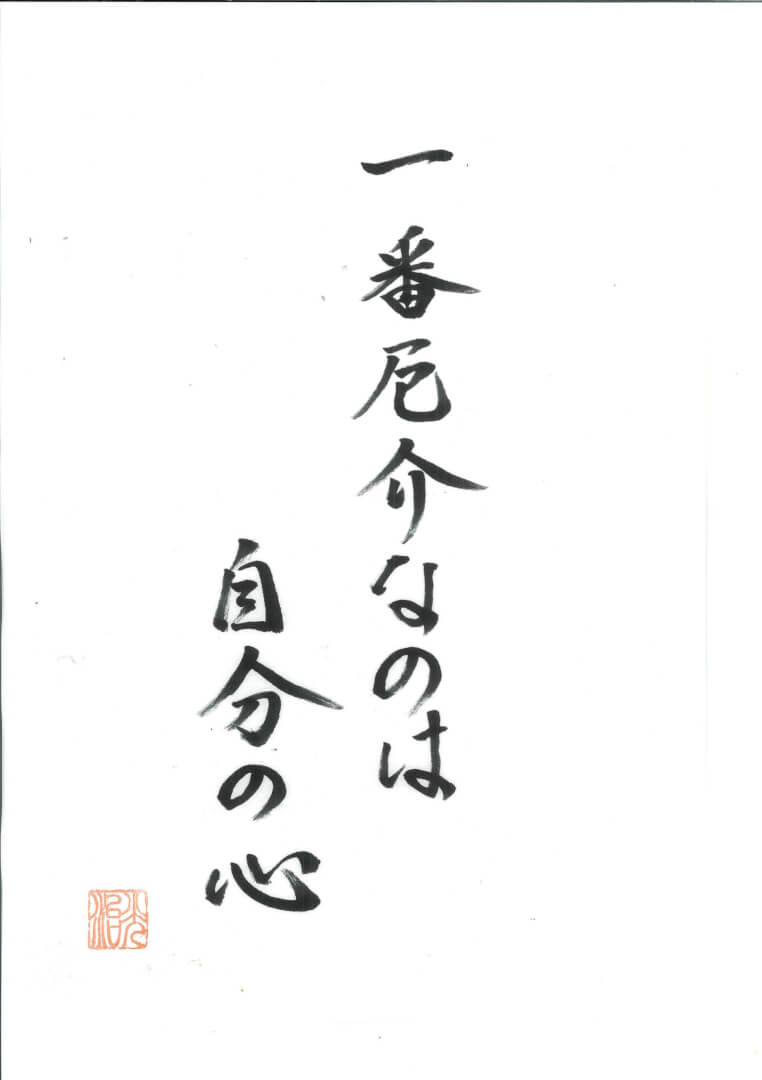 一番厄介なのは
自分の心